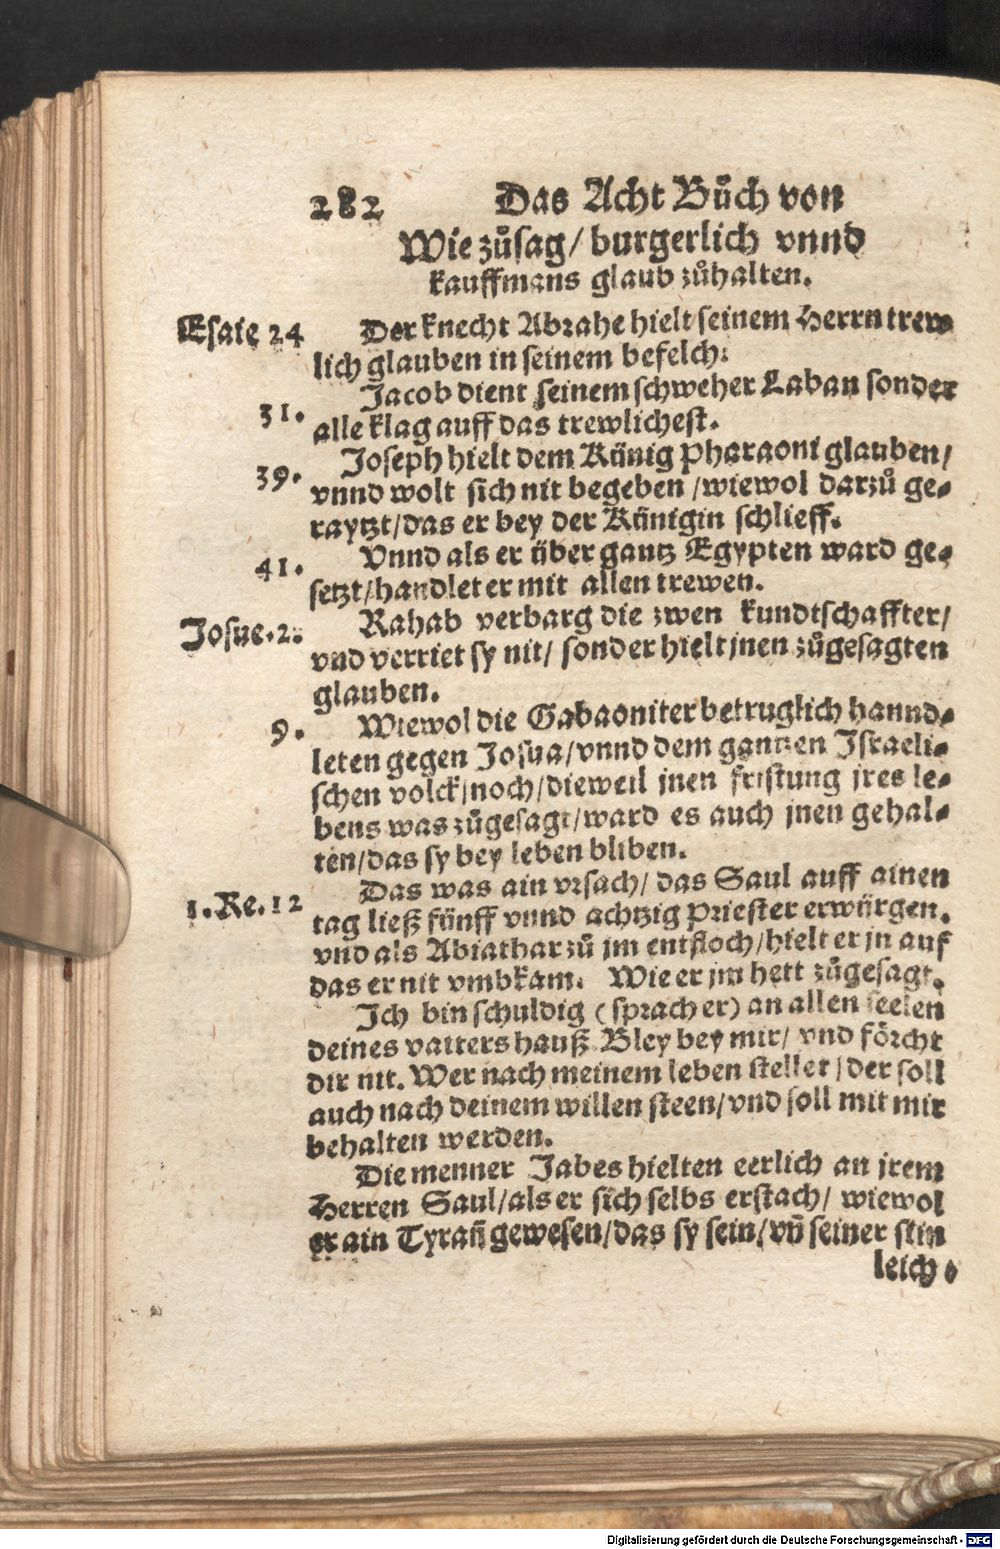 282 Das Acht Bůch von
Wie zůsag/ burgerlich vnnd
kauffmans glaub zůhalten.
Esaie 24 Der knecht Abrahe hielt seinem Herrn trew
lich glauben in seinem befelch:
Jacob dient seinem schweher Laban sonder
31. alle klag auff das trewlichest.
Joseph hielt dem Künig Pharaoni glauben/
39. vnnd wolt sich nit begeben /wiewol darzů ge-
raytzt/das er bey der Künigin schlieff.
Vnnd als er über gantz Egypten ward ge-
41. setzt/handlet er mit allen trewen.
Rahab verbarg die zwen kundtschaffter/
Josue.2. vnd verriet sy nit/ sonder hielt jnen zůgesagten
glauben.
9. Wiewol die Gabaoniter betruglich hannd-
leten gegen Josua/vnnd dem gantzen Israeli-
schen volck/noch/dieweil jnen fristung jres le-
bens was zůgesagt/ward es auch jnen gehal-
ten/das sy bey leben bliben.
Das was ain vrsach/ das Saul auff ainen
1.Re.12 tag ließ fünff vnnd achtzig Priester erwürgen.
vnd als Abiathar zů jm entfloch/hielt er jn auf
das er nit vmbkam. Wie er jm hett zůgesagt.
Ich bin schuldig (sprach er) an allen seelen
deines vatters hauß. Bley bey mir/ vnd förcht
dir nit. Wer nach meinem leben stellet/der soll
auch nach deinem willen steen/vnd soll mit mir
behalten werden.
Die menner Jabes hielten eerlich an jrem
Herren Saul/als er sich selbs erstach/ wiewol
er ain Tyrañ gewesen/das sy sein/vñ seiner sün
leich-
Digitalisierung gefördert durch die Deutsche Forschungsgemeinschaft - DFG